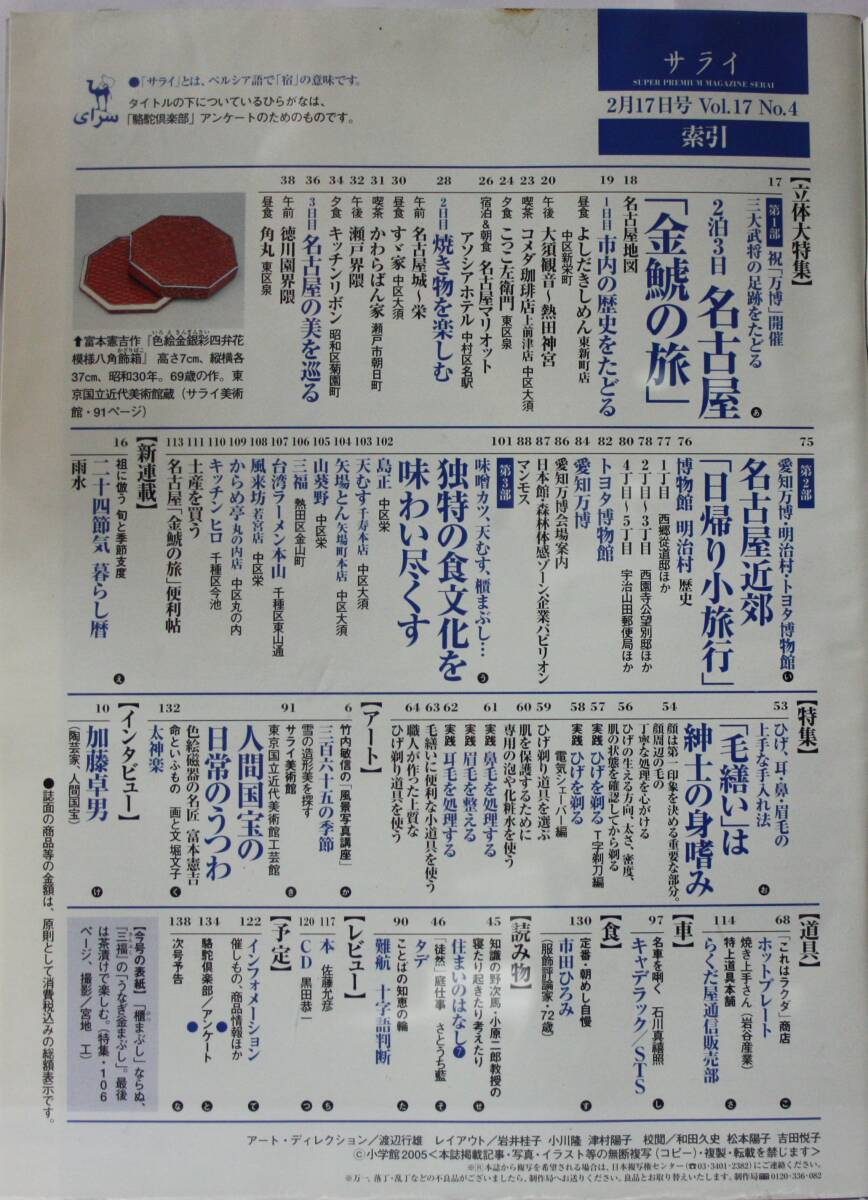 サライ
SUPER PREMIUM MAGAZINE SERAI
2月17日号 Vol.17 No.4
索引
سرای
●「サライ」とは、ペルシア語で「宿」の意味です。
タイトルの下についているひらがなは、
「駱駝倶楽部」アンケートのためのものです。
【立体大特集】
17
第1部 祝「万博」開催
三大武将の足跡をたどる
2泊3日 名古屋
「金鯱の旅」 あ
18 名古屋地図
19 1日目 市内の歴史をたどる
昼食 よしだきしめん 東新町店
中区新栄町
20 午後 大須観音〜熱田神宮
23 喫茶 コメダ珈琲店 上前津店 中区大須
24 夕食 こっこ左衛門 東区泉
26 宿泊&朝食 名古屋マリオット
アソシアホテル 中村区名駅
28 2日目 焼き物を楽しむ
午前 名古屋城〜栄
30 昼食 すゞ家 中区大須
31 喫茶 かわらばん家 瀬戸市朝日町
32 午後 瀬戸界隈
34 夕食 キッチンリボン 昭和区菊園町
36 3日目 名古屋の美を巡る
38 午前 徳川園界隈
昼食 角丸 東区泉
⬆富本憲吉作『色絵金銀彩四弁花
いろえきんぎんさい
模様八角飾箱』 高さ7cm、縦横各
かざりばこ
37cm、昭和30年。69歳の作。東
京国立近代美術館蔵(サライ美術
館・91ページ)
75
第2部
愛知万博・明治村・トヨタ博物館 い
名古屋近郊
「日帰り小旅行」
76 博物館 明治村 歴史
77 1丁目 西郷従道邸ほか
78 2丁目〜3丁目 西園寺公望別邸ほか
80 4丁目〜5丁目 宇治山田郵便局ほか
82 トヨタ博物館
84 愛知万博
86 愛知万博会場案内
87 日本館・森林体感ゾーン・企業パビリオン
88 マンモス
101 第3部
味噌カツ、天むす、櫃まぶし… う
独特の食文化を
味わい尽くす
102 島正 中区栄
103 天むす 千寿本店 中区大須
104 矢場とん 矢場町本店 中区大須
105 山葵野 中区栄
106 三福 熱田区金山町
107 台湾ラーメン本山 千種区東山通
108 風来坊 若宮店 中区栄
109 からめ亭 丸の内店 中区丸の内
110 キッチン ヒロ 千種区今池
111 土産を買う
113 名古屋「金鯱の旅」便利帖
【新連載】
16 祖に倣う 旬と季節支度
二十四節気 暮らし暦 え
雨水
【特集】
53 ひげ、耳・鼻・眉毛の
上手な手入れ法
「毛繕い」は
紳士の身嗜み お
54 顔は第一印象を決める重要な部分。
顔周辺の毛の
丁寧な処理を心がける
56 ひげの生える方向、太さ、密度、
肌の状態を確認してから剃る
57 実践 ひげを剃る T字剃刀編
58 実践 ひげを剃る
電気シェーバー編
59 ひげ剃り道具を選ぶ
60 肌を保護するために
専用の泡や化粧水を使う
61 実践 鼻毛を処理する
実践 眉毛を整える
62 実践 耳毛を処理する
63 毛繕いに便利な小道具を使う
64 職人が作った上質な
ひげ剃り道具を使う
【アート】
6 竹内敏信の「風景写真講座」 か
三百六十五の季節
雪の造形美を探す
91 サライ美術館
東京国立近代美術館工芸館 き
人間国宝の
日常のうつわ
色絵磁器の名匠 富本憲吉
132 命といふもの 画と文 堀文子 く
太神楽
【インタビュー】
10 加藤卓男
(陶芸家、人間国宝) け
【道具】
68 「これはラクダ」商店 こ
ホットプレート
焼き上手さん(岩谷産業)
114 特上道具本舗 さ
らくだ屋通信販売部
【車】
97 名車を聞く 石川真禧照 し
キャデラック/STS
【食】
130 定番・朝めし自慢 す
市田ひろみ
(服飾評論家・72歳)
【読み物】
45 知識の野次馬・小原二郎教授の
寝たり起きたり考えたり せ
住まいのはなし❼
46 「徒然」庭仕事 さとうち藍 そ
タデ
90 ことばの知恵の輪 た
難航 十字語判断
【レビュー】
117 本 佐藤允彦 ち
120 CD 黒田恭一 つ
【予定】
122 インフォメーション
催しもの、商品情報ほか て
134 駱駝倶楽部/アンケート と
138 次号予告 な
【今号の表紙】「櫃まぶし」ならぬ、
「三福」の「うなぎ金まぶし」。最後
は茶漬けで楽しむ。(特集・106
ページ、撮影/宮地 工)
●誌面の商品等の金額は、原則として消費税込みの総額表示です。
アート・ディレクション/渡辺行雄 レイアウト/岩井桂子 小川隆 津村陽子 校閲/和田久史 松本陽子 吉田悦子
©小学館2005<本誌掲載記事・写真・イラスト等の無断複写(コピー)・複製・転載を禁じます>
※Ⓡ本誌から複写を希望される場合は、日本複写権センター(☎03-3401-2382)にご連絡ください。
※万一、落丁、乱丁などの不良品がございましたら、制作局へお送りください。良品とお取り替えいたします。制作局 0120-336-082